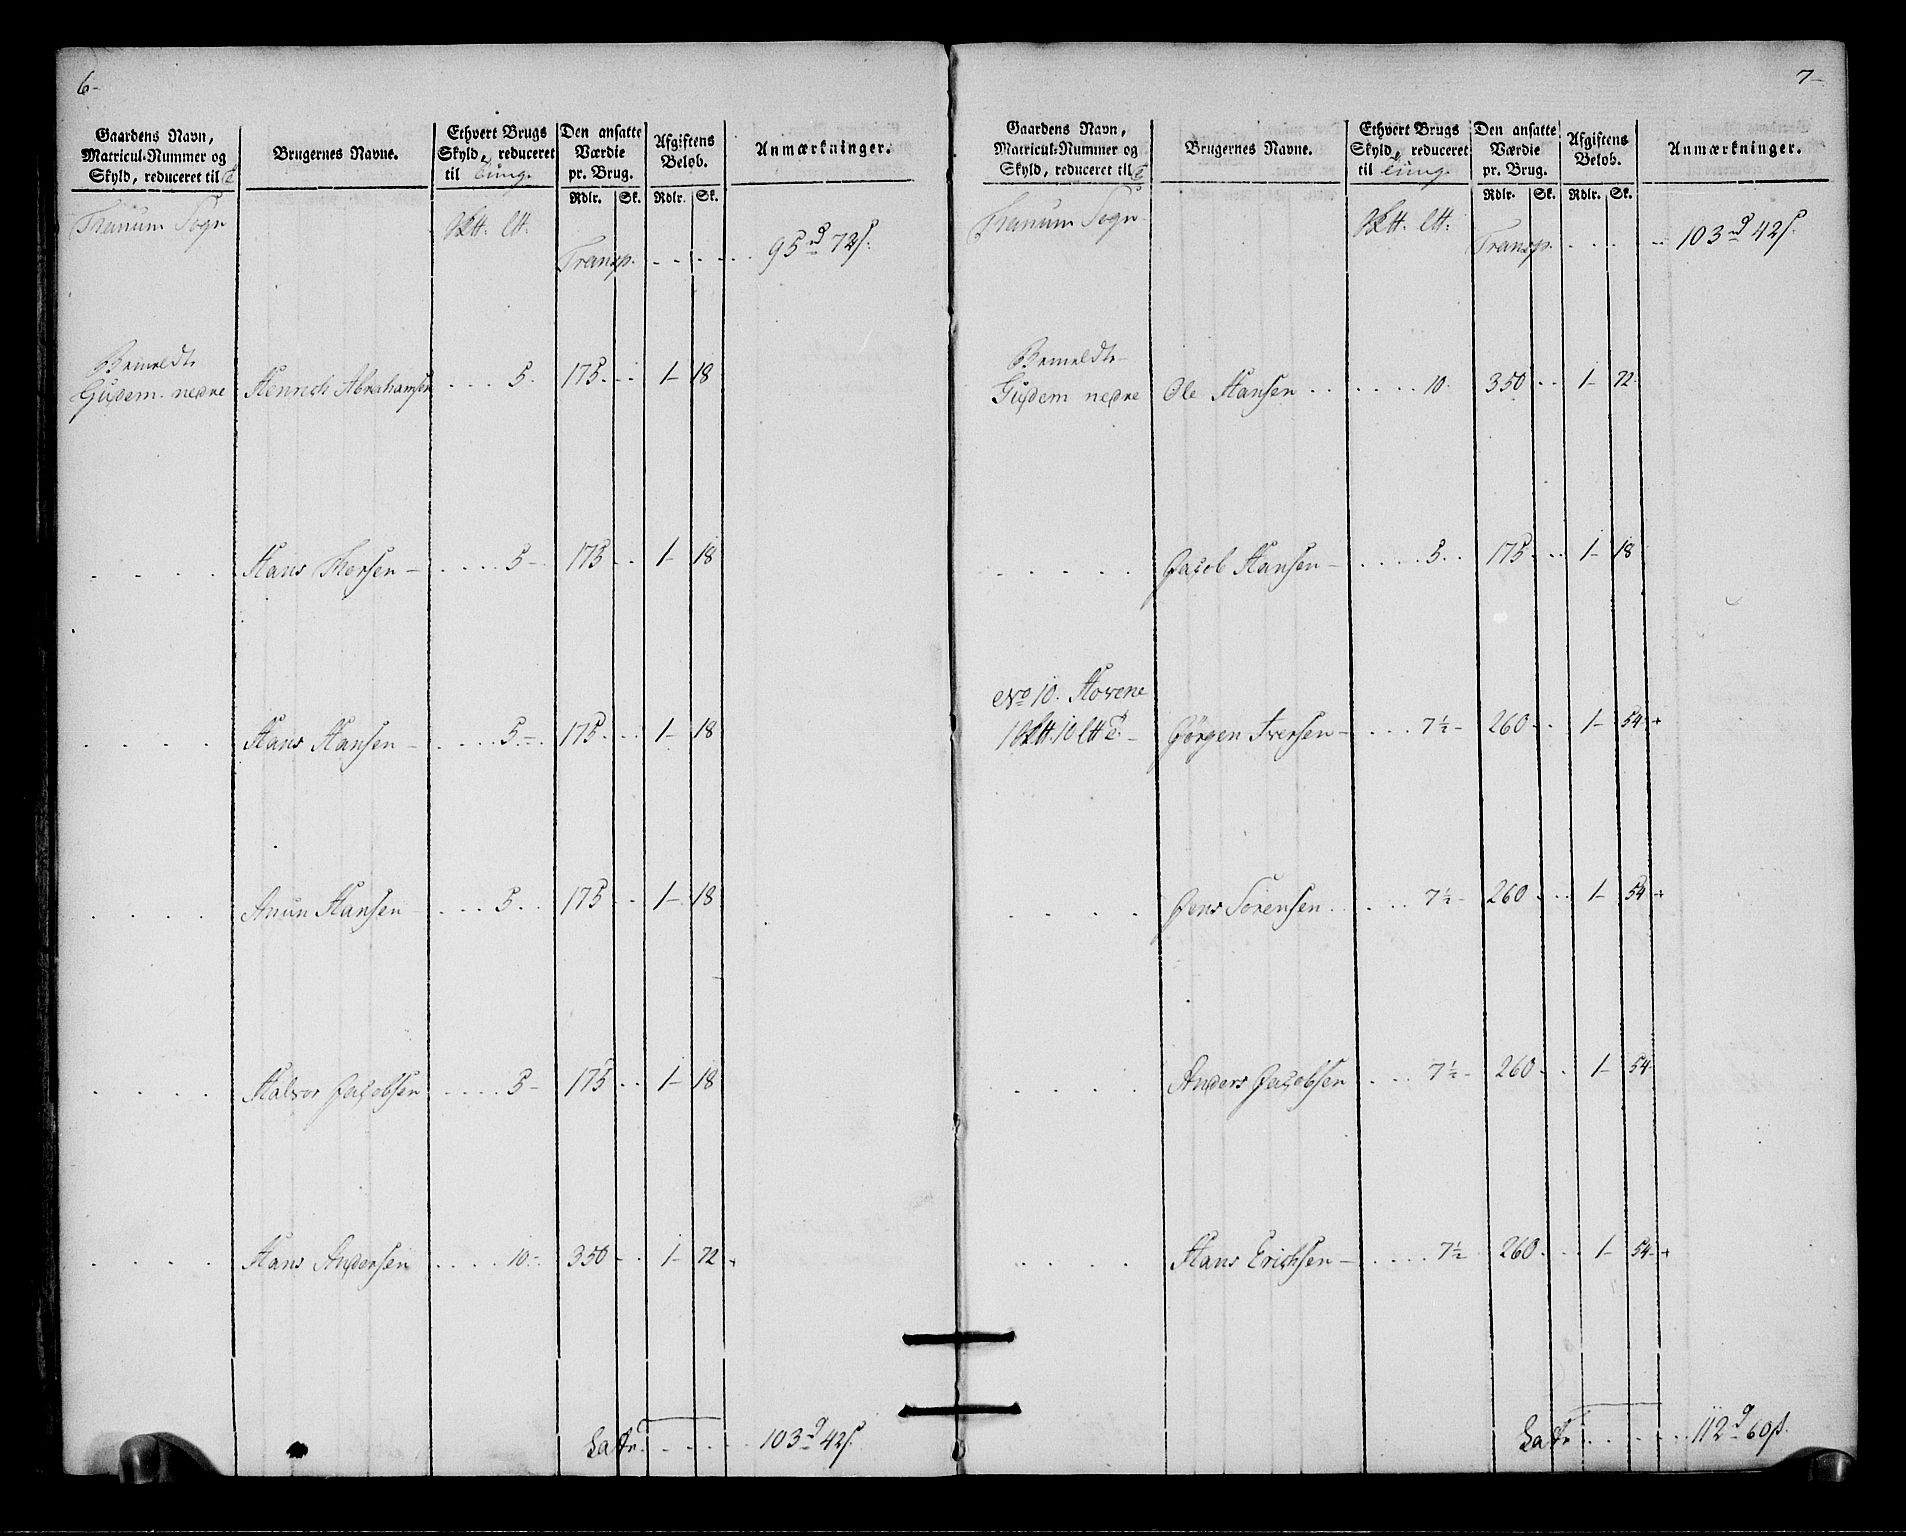 6-
Gaardens Navn, Matricul-Nummer og Skyld, reduceret til
Brugernes Navne.
Ethvert Brugs Skyld, reduceret til Tunge
Den ansatte Værdie pr. Brug.
Afgiftens Beløb.
Anmærkninger.
Rdlr. Sk. Rdlr. Sk.
Thanum Sogn
Transp. . . . . . 95 72
Gusdem nedre Henrich Abrahamsen . . . . 5. 175. . . 1- 18
. . . . Hans Thorsen - . . . . 5- 175 . . 1- 18
. . . . Hans Hansen - . . . . 5-. 175. . . 1- 18
. . . . Anun Hansen - . . . . 5. . 175 . . 1- 18
. . . . Halvor Jacobsen . . . . . 5- 175 . . 1- 18
. . . . Hans Andersen . . . . 10- 350 . . 1- 72
Latr. . . . . . 103 42
7-
Gaardens Navn, Matricul-Nummer og Skyld, reduceret til
Brugernes Navne.
Ethvert Brugs Skyld, reduceret til Tunge
Den ansatte Værdie pr. Brug.
Afgiftens Beløb.
Anmærkninger.
Rdlr. Sk. Rdlr. Sk.
Thanum Sogn
Transp. . . . . . 103 42
Gusdem nedre Ole Hansen . . . . . . . 10. 350 . . 1- 72
. . . . . Jacob Hansen - . . . . 5. . 175 . . 1- 18
No 10. Hovene
Jørgen Iversen - . . . 7½- 260 . . 1- 54 +
. . . . Jens Sørensen . . . . . 7½- 260 . . 1- 54 +
. . . . Anders Jacobsen . . . . 7½- 260 . . 1- 54-
. . . . Hans Erichsen - . . . . 7½ 260. . . 1- 54- +
Latr . . . . . 112 60